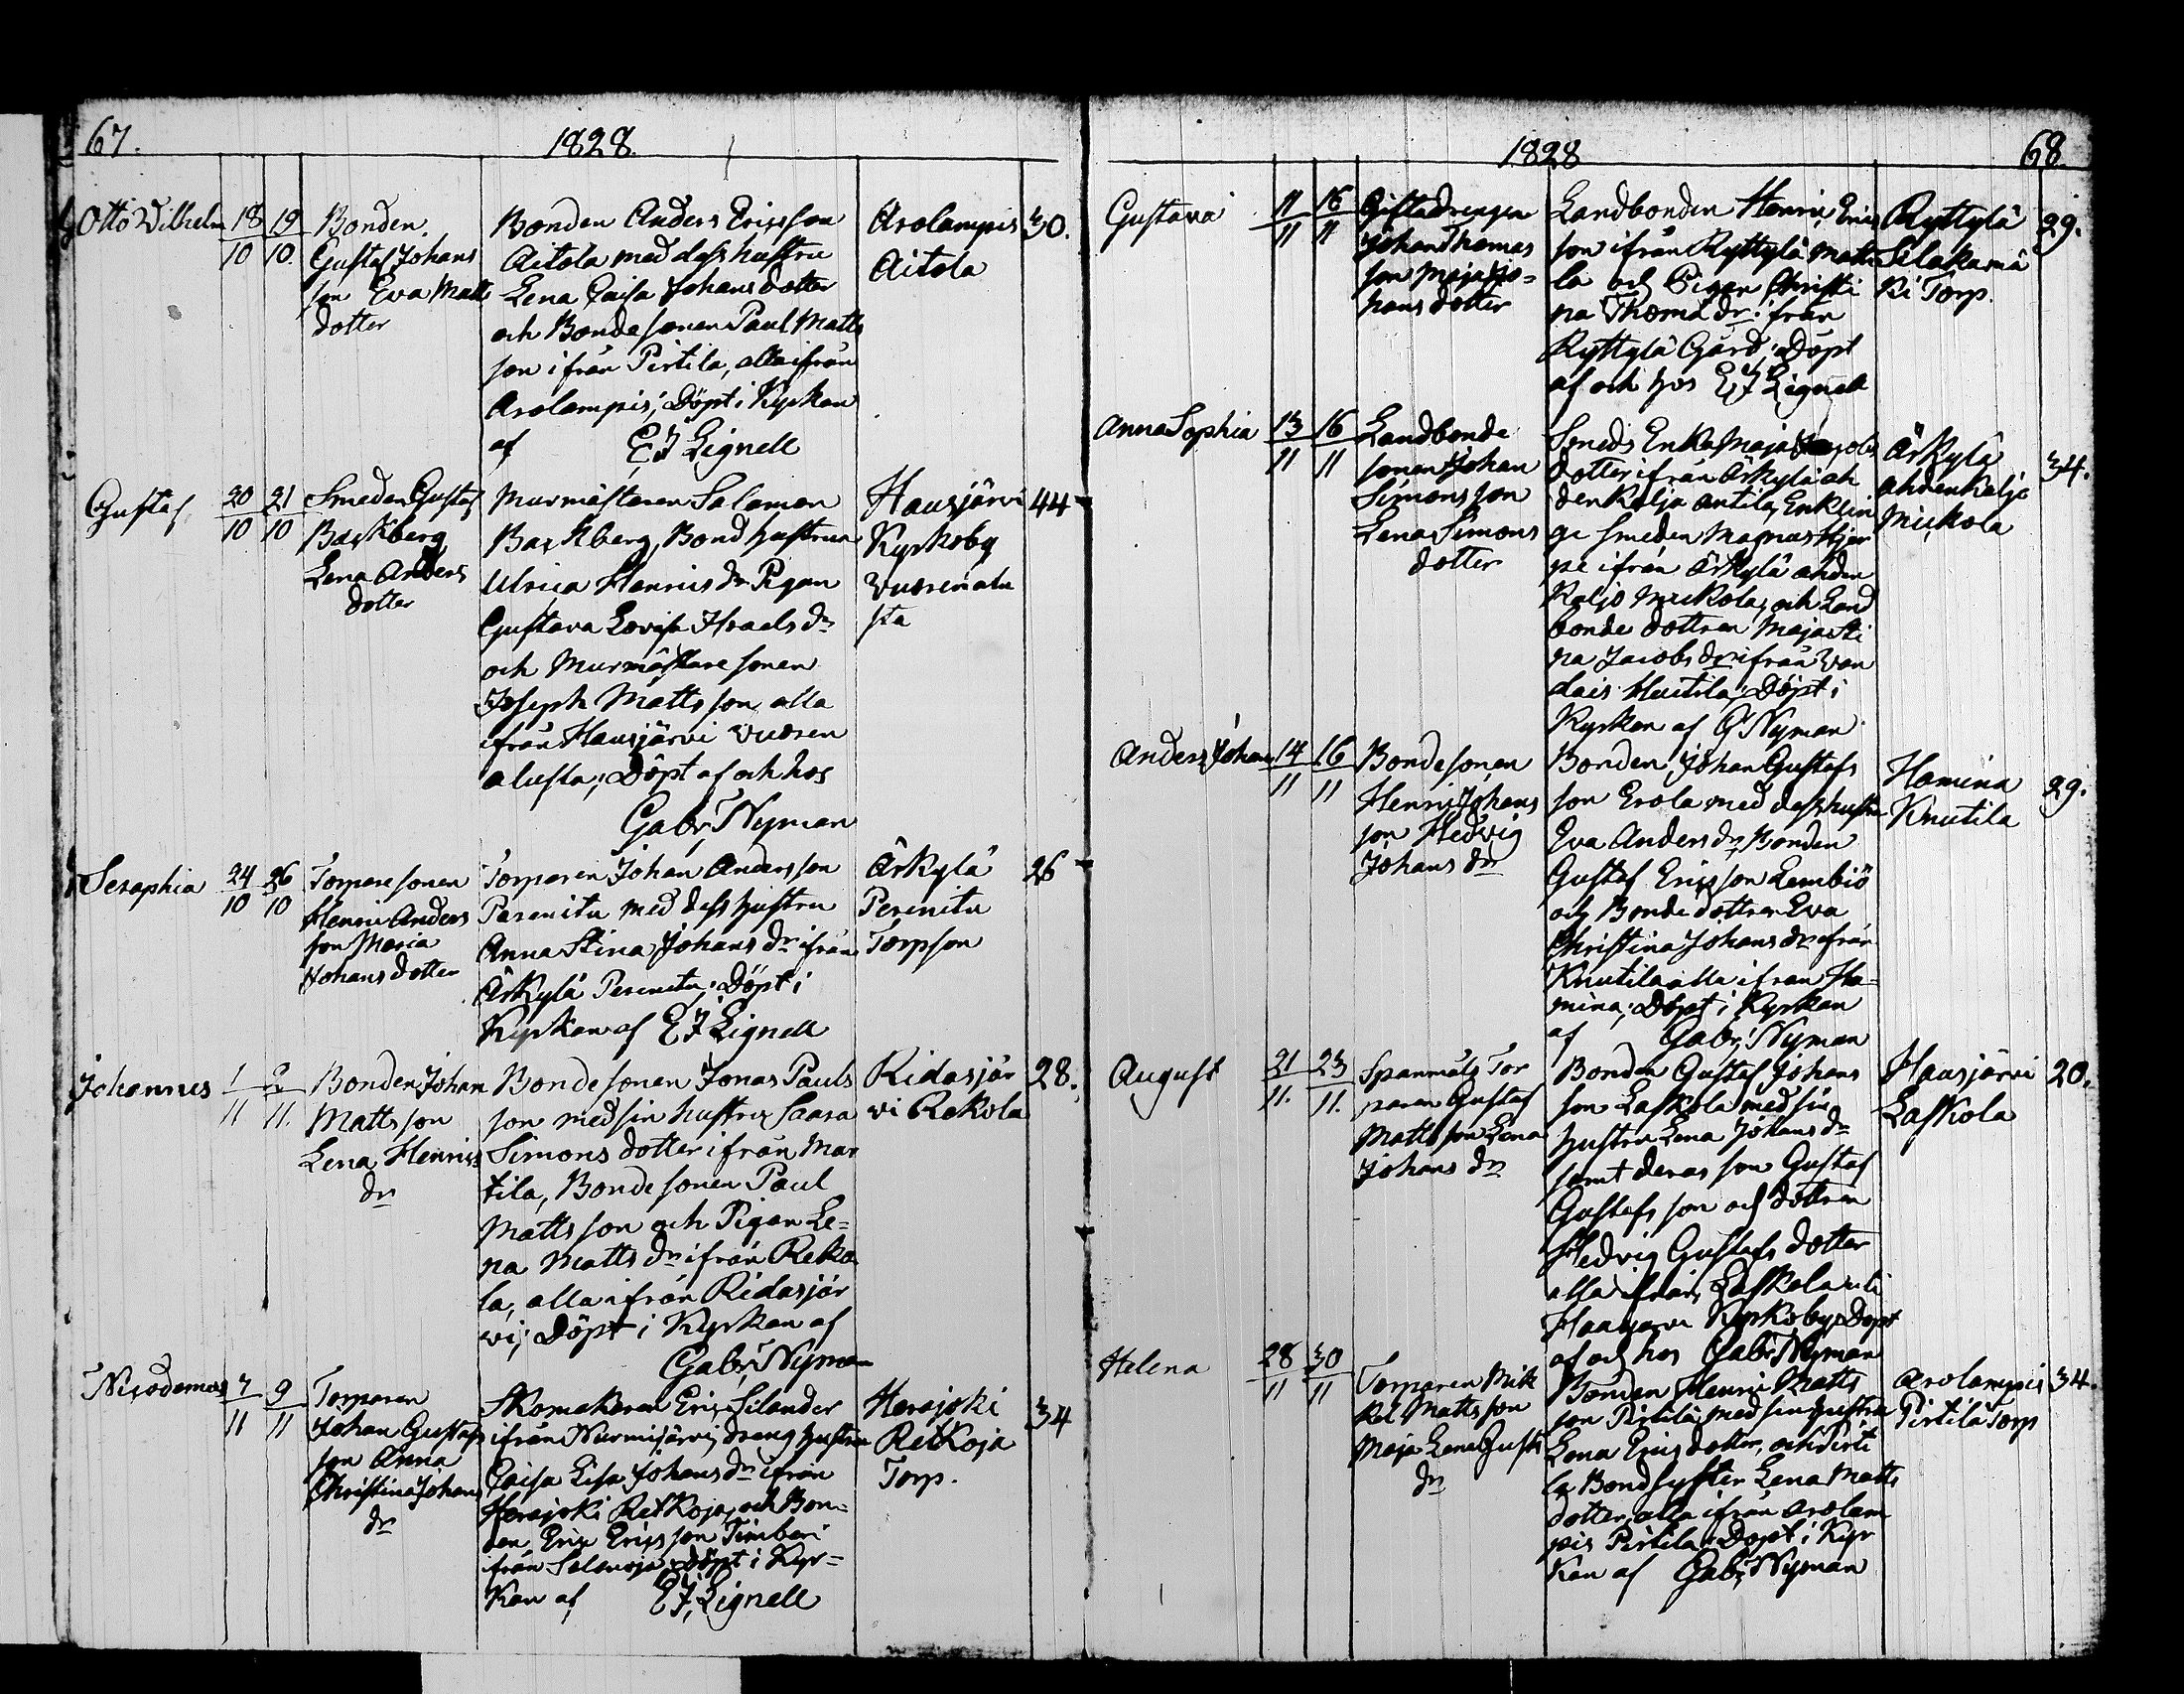 67. 1828.
Otto Wilhelm 18/10 19/10.
Bonden
Gustaf Johans
son Eva Matts
dotter
Bonden Anders Ericsson
Aitola med dess hustru
Lena Caisa Johans dotter
och Bondesonen Paul Matts
son ifrån Pirtila, alla ifrån
Arolampis; Döpt i Kyrkan
af EJ Lignell
Arolampis
Aitola
30.
Gustaf 20/10 21/10
Smeden Gustaf
Backberg
Lena Anders
dotter
Murmästaren Salomon
Backberg, Bond hustrun
Ulrica Henrics dr Pigan
Gustava Lovisa Israels dr
och Murmästare sonen
Joseph Mattsson alla
ifrån Hausjärvi Vuoren
alusta; Döpt af och hos
Gabr. Nyman
Hausjärvi
Kyrkoby
Vuorenalu
sta
44
Seraphia 24/10 26/10
Torpare sonen
Henric Anders
son Maria
Johans dotter
Torparen Johan Andersson
Perenitu med dess hustru
Anna Stina Johans dr ifrån
Ärkylä Perenitu; Döpt i
Kyrkan af EJ Lignell
Ärkylä
Perenitu
Torpson
26
Johannes 1/11 2/11.
Bonden Johan
Mattsson
Lena Henrics
dr
Bondesonen Jonas Pauls
son med sin hustru Saara
Simons dotter ifrån Mar
tila, Bondesonen Paul
Mattsson och Pigan Le-
na Matts dr ifrån Reko
la, alla ifrån Ridasjär
vi; Döpt i Kyrkan af
Gabr. Nyman
Ridasjär
vi Rekola
28.
Nicodemus 7/11 9/11
Torparen
Johan Gustafs
son Anna
Christina Johans
dr
Skomakaren Eric Silander
ifrån Nurmijärvi, dräng hustrun
Caisa Lisa Johans dr ifrån
Herajoki Retkoja, och Bon-
den Eric Ericsson Timberi
ifrån Selänoja; Döpt i Kyr-
kan af EJ Lignell
Herajoki
Retkoja
Torp.
34
1828 68
Gustava 11/11 16/11
Giftadrengen
Johan Thomas
son Maja Jo-
hans dotter
Landbonden Henric Erics
son ifrån Ryttylä Matti
la och Pigan Christi
na Thoma dr ifrån
Ryttylä Gård; Döpt
af och hos EJ Lignell
Ryttylä
Selakamä
ki Torp.
29.
Anna Sophia 13/11 16/11
Landbonde
sonen Johan
Simonsson
Lena Simons
dotter
Smeds Enka Maja Jacobs
dotter ifrån Ärkylä ah
denkaljo Antila, Enklin
ge Smeden Magnus Hjer
pe ifrån Ärkylä ahden
Kaljo Muckola, och Land
bonde dottren Maja Sti
na Jacobs dr ifrån Van
dais Huitila; Döpt i
Kyrkan af G Nyman
Ärkylä
ahdenkaljo
Muckola
34.
Anders Johan 14/11 16/11
Bondesonen
Henric Johans
son Hedvig
Johans dr
Bonden Johan Gustafs
son Erola med dess hustru
Eva Anders dr, Bonden
Gustaf Ericsson Lembiö
och Bonde dottren Eva
Christina Johans dr ifrån
Knutila alla ifrån Ha-
mina; Döpt i Kyrkan
af Gabr. Nyman
Hamina
Knutila
29.
August 21/11. 23/11.
Spanmåls Tor
paren Gustaf
Mattsson Lena
Johans dr
Bonden Gustaf Johans
son Laskola med sin
hustru Lena Johans dr
samt deras son Gustaf
Gustafs son och dottren
Hedvig Gustafs dotter
alla ifrån Laskola uti
Hausjärvi Kyrkoby; Döpt
af och hos Gabr Nyman
Hausjärvi
Laskola
20.
Helena 28/11 30/11
Torparen Mik
kel Mattsson
Maja Lena Gusts
dr
Bonden Henric Matts
son Pirtilä med sin hustru
Lena Erics dotter, och Pirti
la Bond syster Lena Matts
dotter, alla ifrån Arolam
pis Pirtila; Döpt i Kyr
kan af Gabr Nyman
Arolampis
Pirtilä Torp
34.